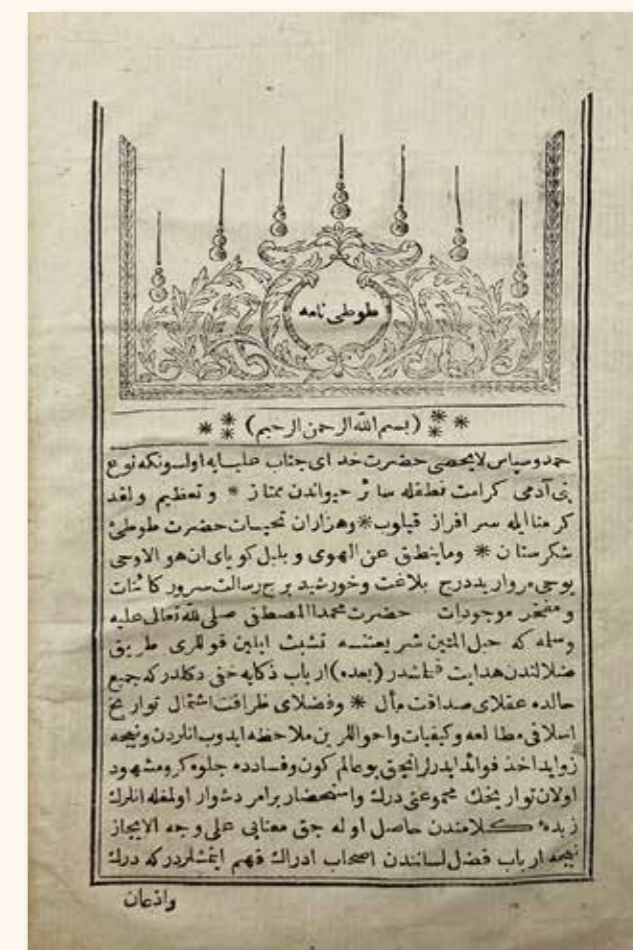 طوطى نامه
(بسم الله الرحمن الرحيم)
حمد وسپاس لايحصى حضرت خداى جناب عليايه اولسونكه نوع
بنى آدمى كرامت نطقله سائر حيواندن ممتاز * وتعظيم ولقد
كرمنا ايله سرافراز قيلوب * وهزاران تحيات حضرت طوطئ
شكرستان * وماينطق عن الهوى وبلبل كوياى ان هو الا وحى
يوحى مرواريد درج بلاغت وخورشيد برج رسالت سرور كائنات
ومفخر موجودات حضرت محمد المصطفى صلى لله تعالى عليه
وسلمه كه حبل المتين شريعتنه تشبث ايلين قوللرى طريق
ضلالتدن هدايت قيلمشدر (بعده) ارباب ذكايه خفى دكلدر كه جميع
حالده عقلاى صداقت مأل * وفضلاى ظرافت اشتمال تواريخ
اسلافى مطالعه وكيفيات واحواللرين ملاحظه ايدوب انلردن ونيجه
زوايد اخذ فوائد ايدرلر انجق بو عالم كون وفسادده جلوه كر ومشهود
اولان تواريخك مجموعنى درك واستحضار بر امر دشوار اولمغله انلرك
زبده كلامندن حاصل اوله جق معنايى على وجه الايجاز
نيجه ارباب فضل لسانندن اصحاب ادراك فهم ايتمشلردر كه درك
واذعان